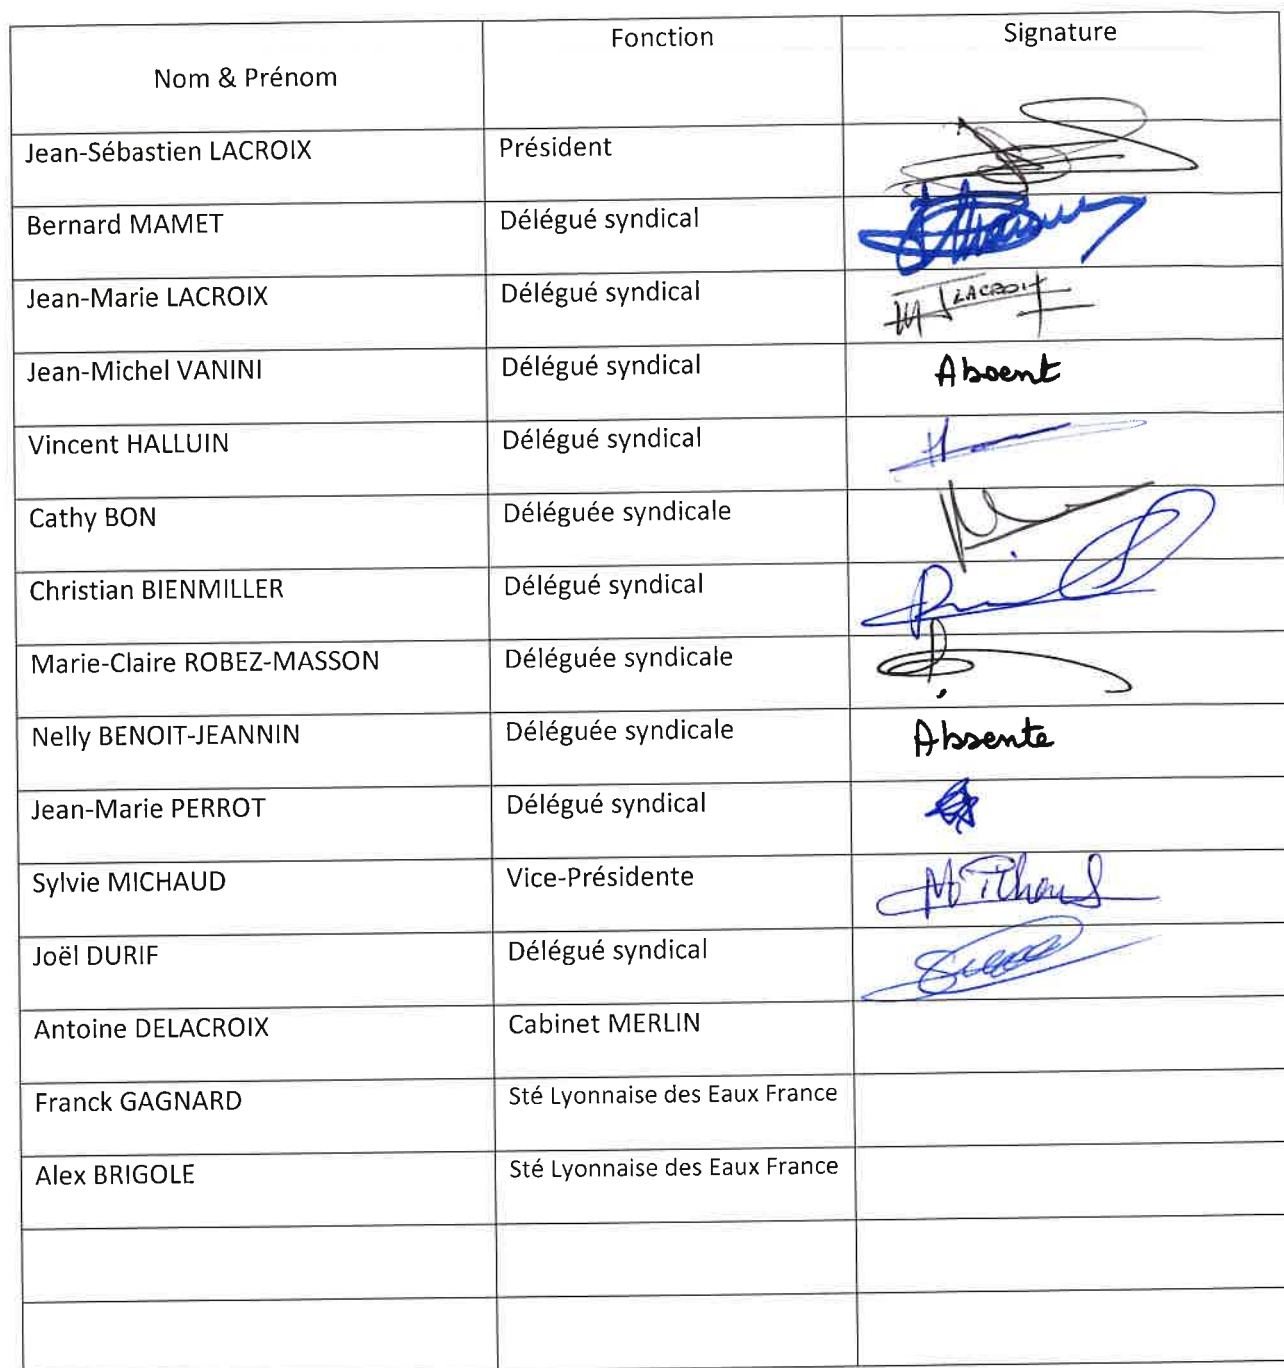 Nom & Prénom Fonction Signature
Jean-Sébastien LACROIX Président
Bernard MAMET Délégué syndical
Jean-Marie LACROIX Délégué syndical LACROIX
Jean-Michel VANINI Délégué syndical Absent
Vincent HALLUIN Délégué syndical
Cathy BON Déléguée syndicale
Christian BIENMILLER Délégué syndical
Marie-Claire ROBEZ-MASSON Déléguée syndicale
Nelly BENOIT-JEANNIN Déléguée syndicale Absente
Jean-Marie PERROT Délégué syndical
Sylvie MICHAUD Vice-Présidente
Joël DURIF Délégué syndical
Antoine DELACROIX Cabinet MERLIN
Franck GAGNARD Sté Lyonnaise des Eaux France
Alex BRIGOLE Sté Lyonnaise des Eaux France